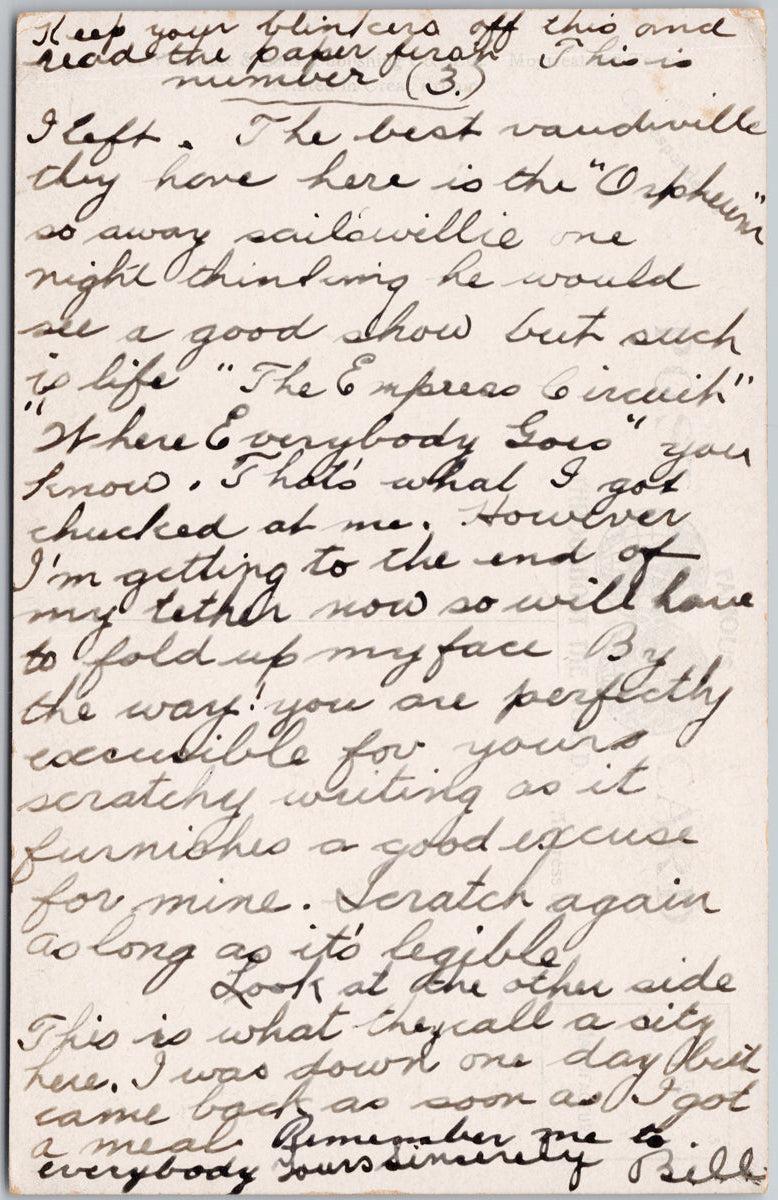 Keep your blinkers off this and
read the paper first This is
number (3.)
I left. The best vaudiville
they have here is the "Orpheum"
so away sails willie one
night thinking he would
see a good show but such
is life "The Empress Circuit"
"Where Everybody Goes" you
know. That's what I got
chucked at me. However
I'm getting to the end of
my tether now so will have
to fold up my face By
the way! you are perfectly
excusible for yours
scratchy writing as it
furnishes a good excuse
for mine. Scratch again
as long as it's legible
Look at the other side
This is what they call a city
here. I was down one day but
came back as soon as I got
a meal. Remember me to
everybody Yours sincerely Bill